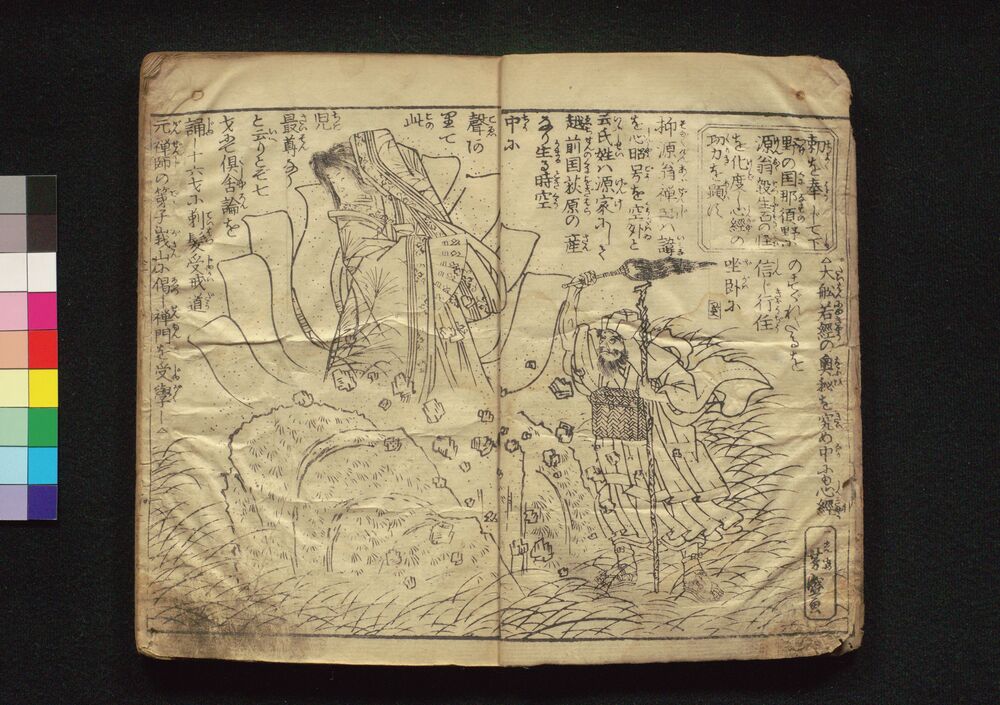 勅を奉じて下
野の国那須野に
源翁殺生石の怪
を化度し心経の
功力を顕す
抑源翁禅師ハ諱
を心昭号を空外と
云氏姓ハ源家にして
越前国荻原の産
なり生る時空
中に
聲あり
此
児
最尊なり
と云りとぞ七
才にて倶舎論を
誦し十六才に剃髪受戒し道
元禅師の弟子峩山に謁し禅門を受
△大般若経の奥秘を究め中にも心経
のすぐれたるを
信じ行住
坐卧に